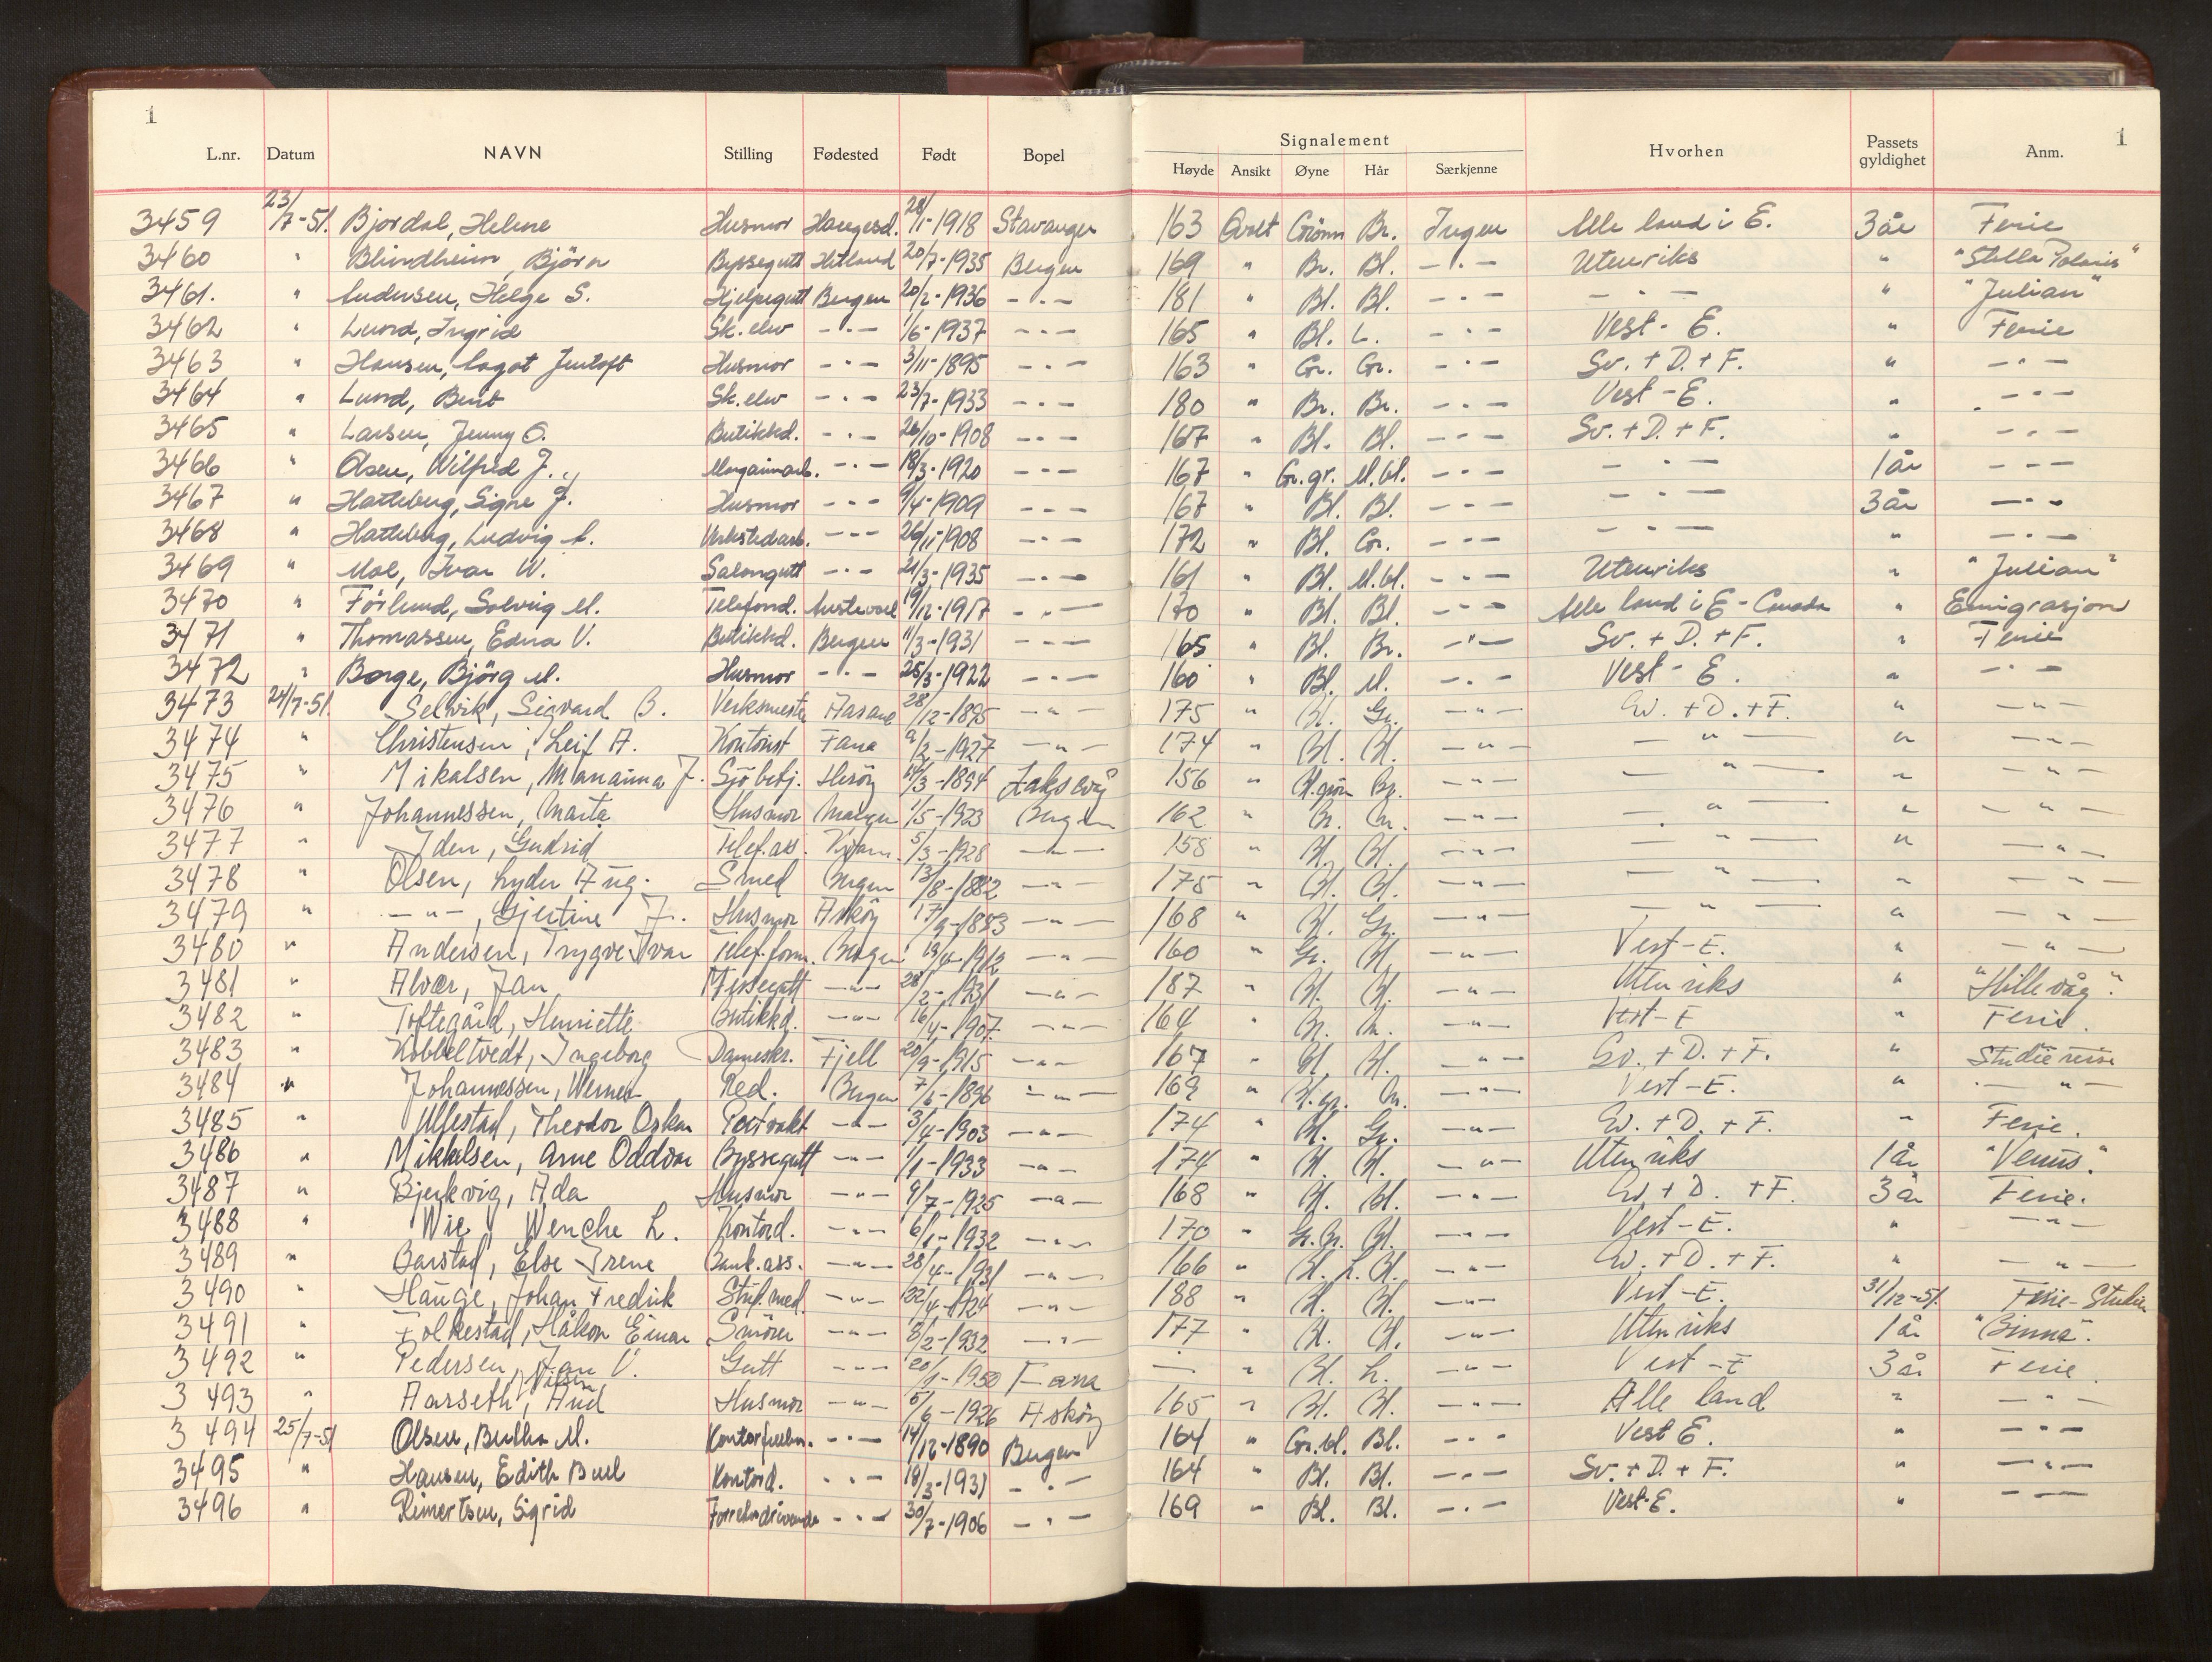 1
L.nr. Datum NAVN Stilling Fødested Født Bopel Signalement Høyde Ansikt Øyne Hår Særkjenne Hvorhen Passets gyldighet Anm. 1
3459 23/7-51. Bjordal, Helene Husmor Haugesd. 28/1-1918 Stavanger 163 Ovalt Grönn Br. Ingen Alle land i E. 3 år Ferie
3460 " Blindheim, Björn Byssegutt Hitland 20/7-1935 Bergen 169 " Br. Bl. - " - Utenriks " "Stella Polaris"
3461. " Andersen, Helge S. Hjelpegutt Bergen 20/2-1936 - " - 181 " Bl. Bl. - " - - " - " "Julian"
3462 " Lund, Ingrid Sk.elev - " - 1/6-1937 - " - 165 " Bl. L. - " - Vest-E. " Ferie
3463 " Hansen, Aagot Jentoft Husmor - " - 3/11-1895 - " - 163 " Gr. Gr. - " - Sv. + D. + F. " - " -
3464 " Lund, Berit Sk.elev - " - 23/7-1933 - " - 180 " Br. Br. - " - Vest-E. " - " -
3465 " Larsen, Jenny O. Butikkd. - " - 26/10-1908 - " - 167 " Bl. Bl. - " - Sv. + D. + F. " - " -
3466 " Olsen, Wilfred J. - " - 18/3-1920 - " - 167 " Gr.gr. M.bl. - " - - " - 1 år - " -
3467 " Hatteberg, Signe J. Husmor - " - 9/4-1909 - " - 167 " Bl. Bl. - " - - " - 3 år - " -
3468 " Hatteberg, Ludvig A. Verkstedarb. - " - 26/11-1908 - " - 172 " Bl. Gr. - " - - " - " - " -
3469 " Moe, Ivar W. Salongutt - " - 21/3-1935 - " - 161 " Bl. M.bl. - " - Utenriks " "Julian"
3470 " Førlund, Solveig M. Telefond. Austevoll 19/12-1917 - " - 170 " Bl. Bl. - " - Alle land i E - Canada " Emigrasjon
3471 " Thomassen, Edna V. Butikkd. Bergen 11/3-1931 - " - 165 " Bl. Br. - " - Sv. + D. + F. " Ferie
3472 " Borge, Björg M. Husmor - " - 25/3-1922 - " - 160 " Bl. M. - " - Vest-E. " - " -
3473 24/7-51. Selvik, Sigvard B. Verksmester Aasane 28/12-1895 - " - 175 " Bl. Gr. - " - Sv. + D. + F. " - " -
3474 " Christensen, Leif A. Kontorist Fana 9/2-1927 - " - 174 " Bl. Bl. - " - - " - " - " -
3475 " Mikalsen, J. Sjöbetj. Heröy 14/3-1894 Laksevåg 156 " Bl.grön Br. - " - - " - " - " -
3476 " Johannessen, Marta Husmor 1/5-1923 Bergen 162 " Br. Br. - " - - " - " - " -
3477 " Iden, Gudrid Telef.ass. Kvam. 5/3-1928 - " - 158 " Bl. Bl. - " - - " - " - " -
3478 " Olsen, Lyder Aug. Smed Bergen 13/8-1882 - " - 175 " Bl. Bl. - " - - " - " - " -
3479 " - " -, Gjertine J. Husmor Asköy 17/9-1883 - " - 168 " Bl. Gr. - " - - " - " - " -
3480 " Andersen, Trygve Ivar Telef.form. Bergen 19/4-1912 - " - 160 " Gr. Bl. - " - Vest-E. " - " -
3481 " Alvær, Jan Messegutt - " - 28/2-1931 - " - 187 " Bl. Bl. - " - Utenriks " "Hillevåg".
3482 " Toftegård, Henriette Butikkd. - " - 16/4-1907. - " - 164 " Br. Br. - " - Vest-E " Ferie.
3483 " Kobbeltvedt, Ingeborg Dameskr. Fjell 20/9-1915 - " - 167 " Bl. Bl. - " - Sv. + D. + F. " Studiereise
3484 " Johannessen, Werner Red. Bergen 7/6-1896 - " - 169 " Bl.gr. Br. - " - Vest-E. " - " -
3485 " Ulfestad, Theodor Oskar Portvakt - " - 3/4-1903 - " - 174 " Bl. Gr. - " - Sv. + D. + F. " Ferie.
3486 " Mikkelsen, Arne Oddvar Byssegutt - " - 1/1-1933 - " - 174 " Bl. Bl. - " - Utenriks 1 år "Venus".
3487 " Bjerkvig, Ada Husmor - " - 9/7-1925 - " - 168 " Bl. Bl. - " - Sv. + D. + F. 3 år Ferie.
3488 " Wie, Wenche L. Kontord. - " - 6/1-1932 - " - 170 " Gr.Br. Bl. - " - Vest-E. " - " -
3489 " Barstad, Else Irene Bank.ass. - " - 28/4-1931 - " - 166 " Bl. L.Bl. - " - Sv. + D. + F. " - " -
3490 " Hauge, Johan Fredrik Stud.med. - " - 22/4-1924 - " - 188 " Bl. Bl. - " - Vest-E. 31/12-51. Ferie-Studier
3491 " Folkestad, Håkon Einar Smörer - " - 8/2-1932 - " - 177 " Bl. Bl. - " - Utenriks 1 år "Binna".
3492 " Pedersen, Jan V. Gutt - " - 20/1-1950 Fana — " Bl. L. - " - Vest-E 3 år Ferie.
3493 " Aarseth, Aud Husmor - " - 5/6-1926 Asköy 165 " Bl. Bl. - " - Alle land " - " -
3494 25/7-51 Olsen, Bertha M. - " - 14/12-1890 Bergen 164 " Gr.bl. Bl. - " - Vest E. " - " -
3495 " Hansen, Edith Buel Kontord. - " - 18/3-1931 - " - 164 " Bl. Bl. - " - Sv. + D. + F. " - " -
3496 " Reimertsen, Sigrid - " - 30/7-1906 - " - 169 " Bl. Bl. - " - Vest-E. " - " -